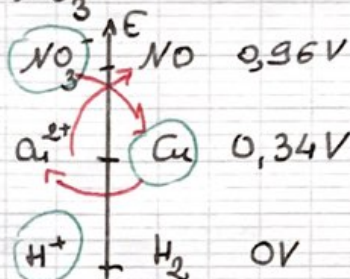 3
E
NO3- NO 0,96V
Cu2+ Cu 0,34V
H+ H2 0V